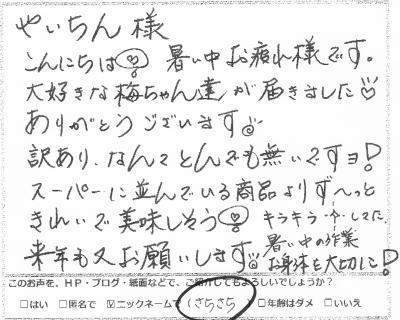 やいちん 様
こんにちは 暑い中お疲れ様です。
大好きな梅ちゃん達が届きました
ありがとうございます
訳あり、なんてとんでも無いですョ!
スーパーに並んでいる商品よりず〜っと
きれいで美味しそう キラキラ してた。
来年も又お願いします 暑い中の作業
お身体を大切に!
このお声を、HP・ブログ・紙面などで、ご紹介してもよろしいでしょうか?
□はい □匿名で ☑ニックネームで(さらさら) □年齢はダメ □いいえ